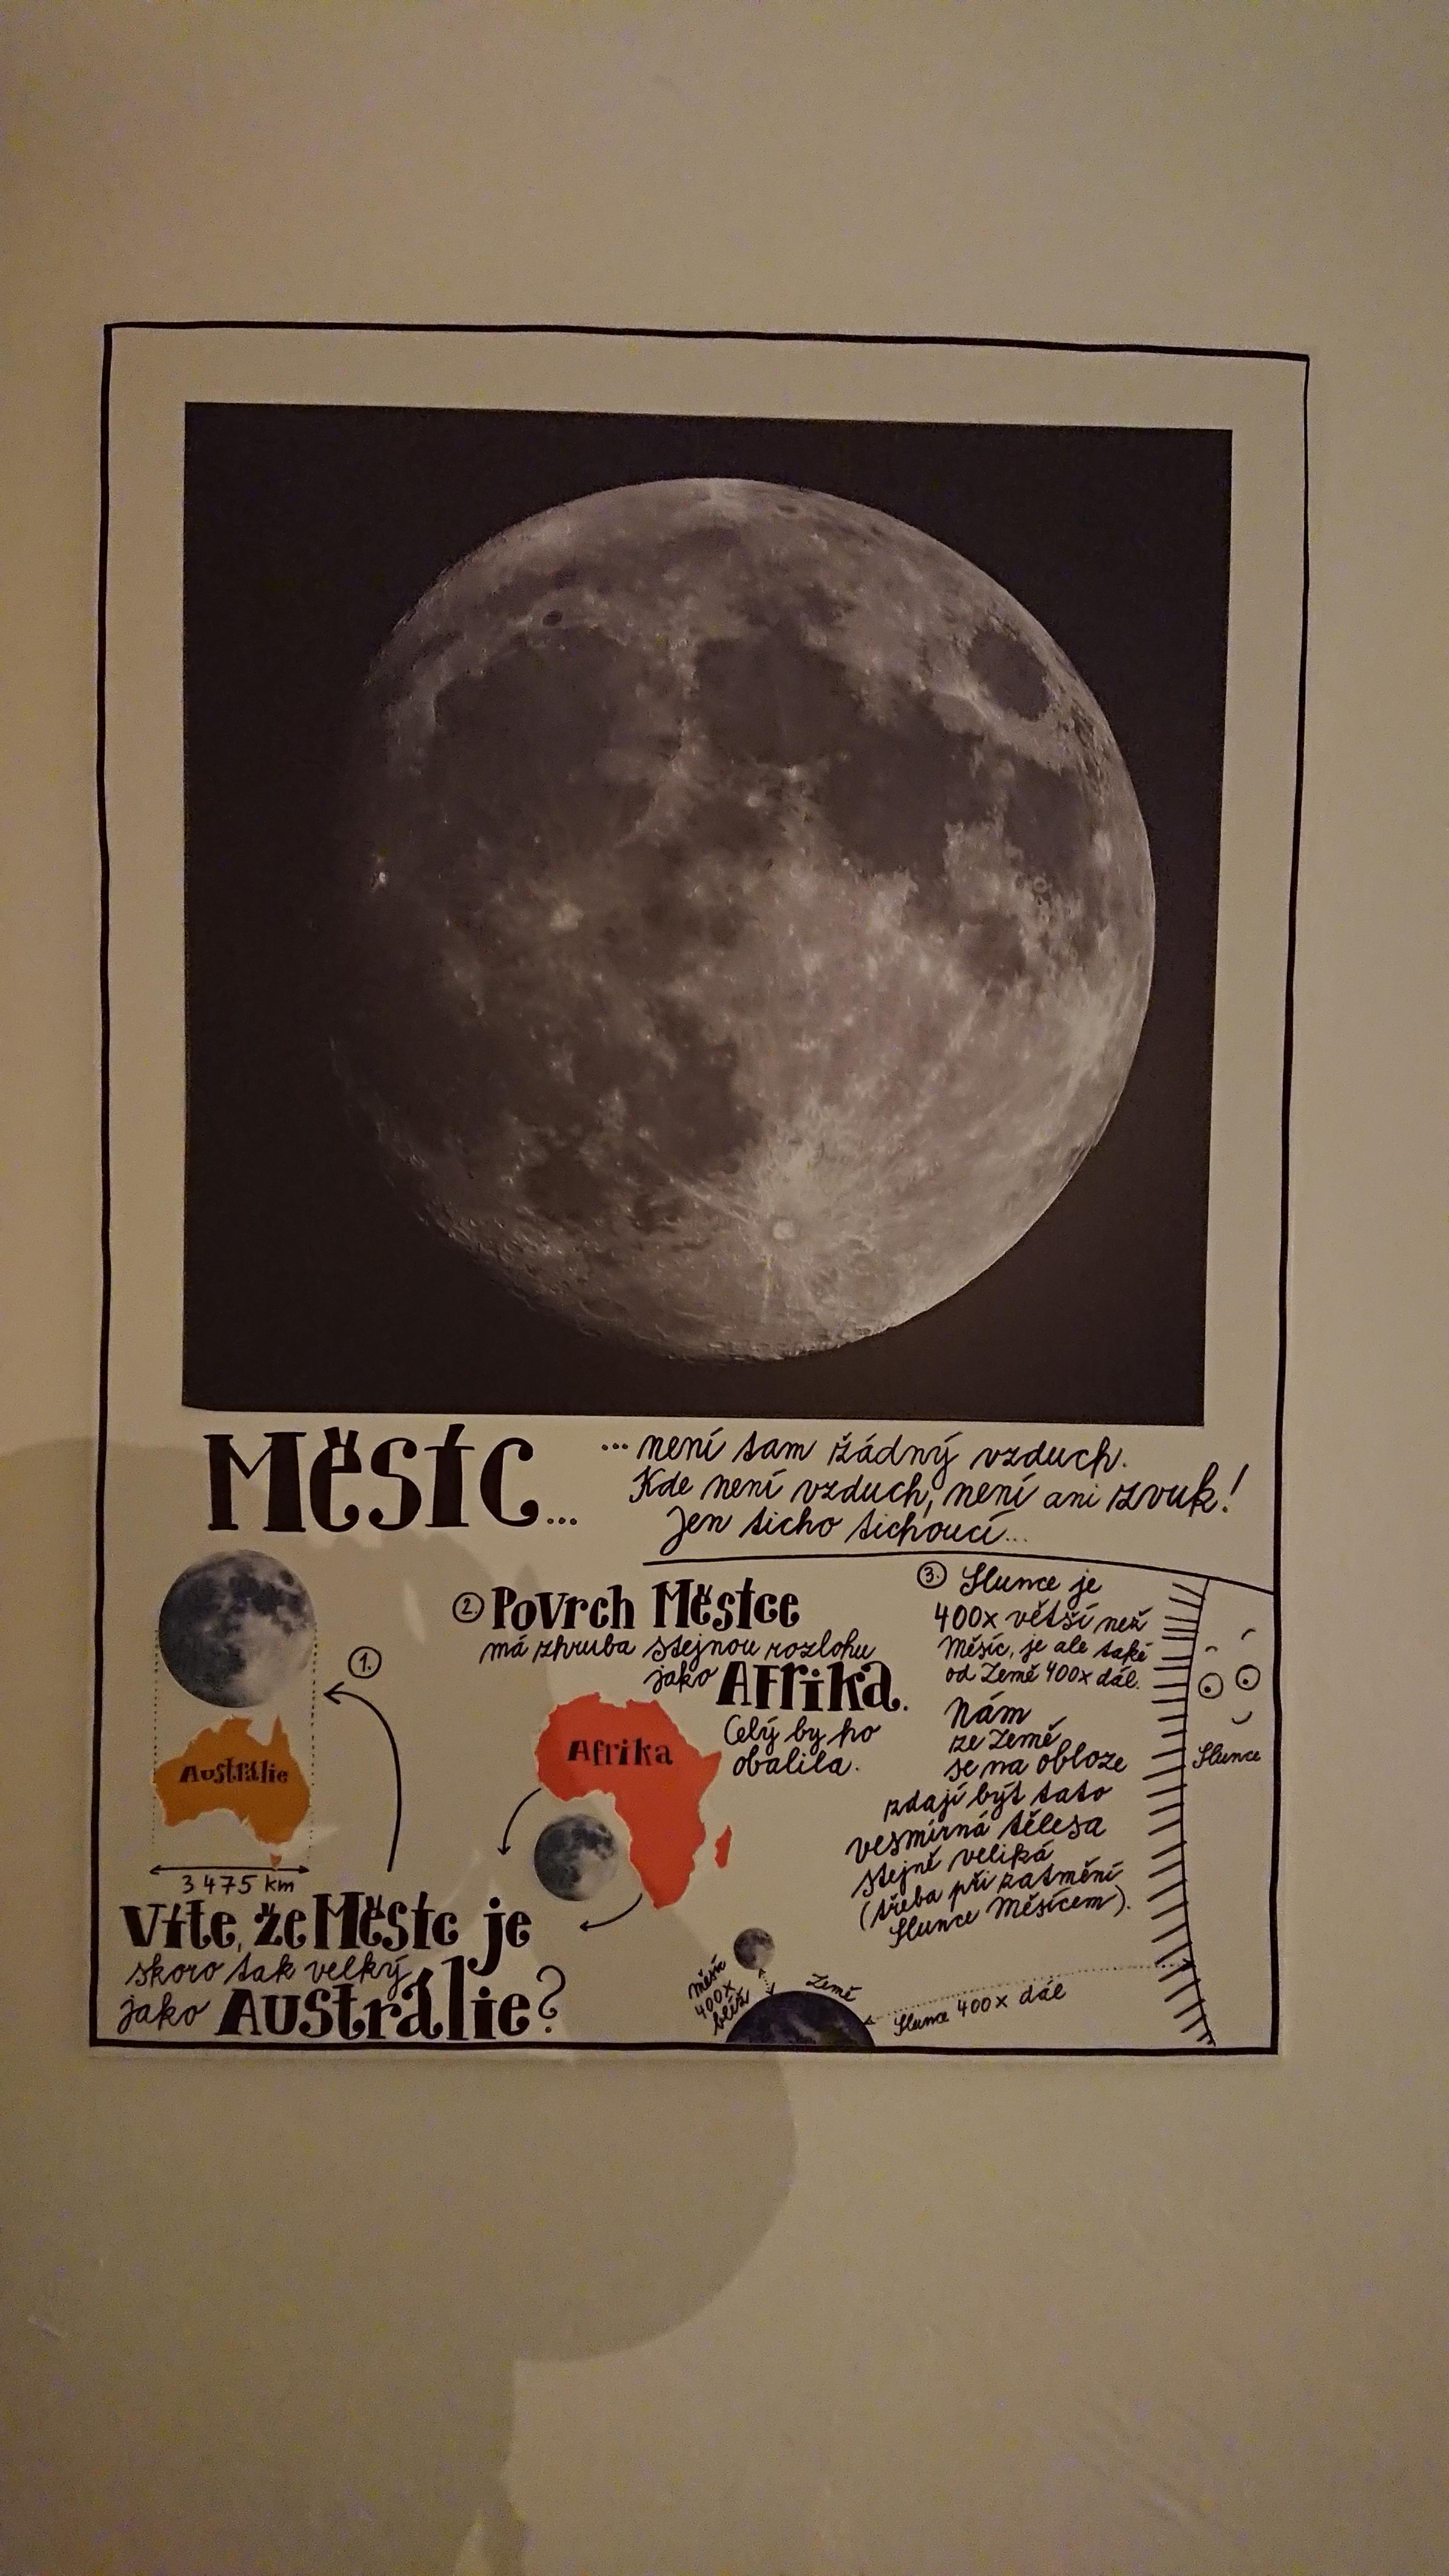 Měsíc...
...není tam žádný vzduch.
Kde není vzduch, není ani zvuk!
Jen ticho tichoucí...
1.
Austrálie
3 475 km
Víte, že Měsíc je
skoro tak velký
jako Austrálie?
2. Povrch Měsíce
má zhruba stejnou rozlohu
jako Afrika.
Celý by ho
obalila.
Afrika
3. Slunce je
400x větší než
Měsíc, je ale také
od Země 400x dál.
Nám
ze Země
se na obloze
zdají být tato
vesmírná tělesa
stejně veliká
(třeba při zatmění
Slunce Měsícem).
Slunce
Měsíc
400x
blíž
Země
Slunce 400x dál